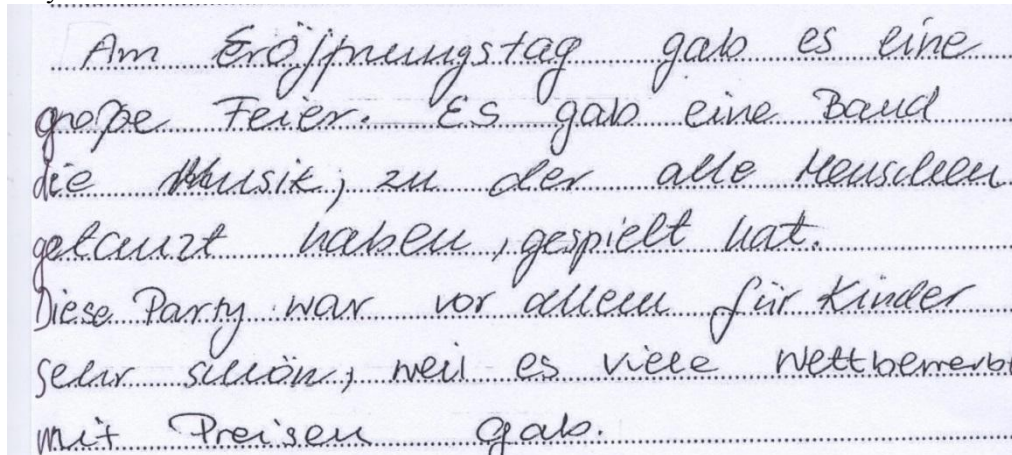 Am Eröffnungstag gab es eine
große Feier. Es gab eine Band
die Musik, zu der alle Menschen
getanzt haben, gespielt hat.
Diese Party war vor allem für Kinder
sehr schön, weil es viele Wettbewerbe
mit Preisen gab.